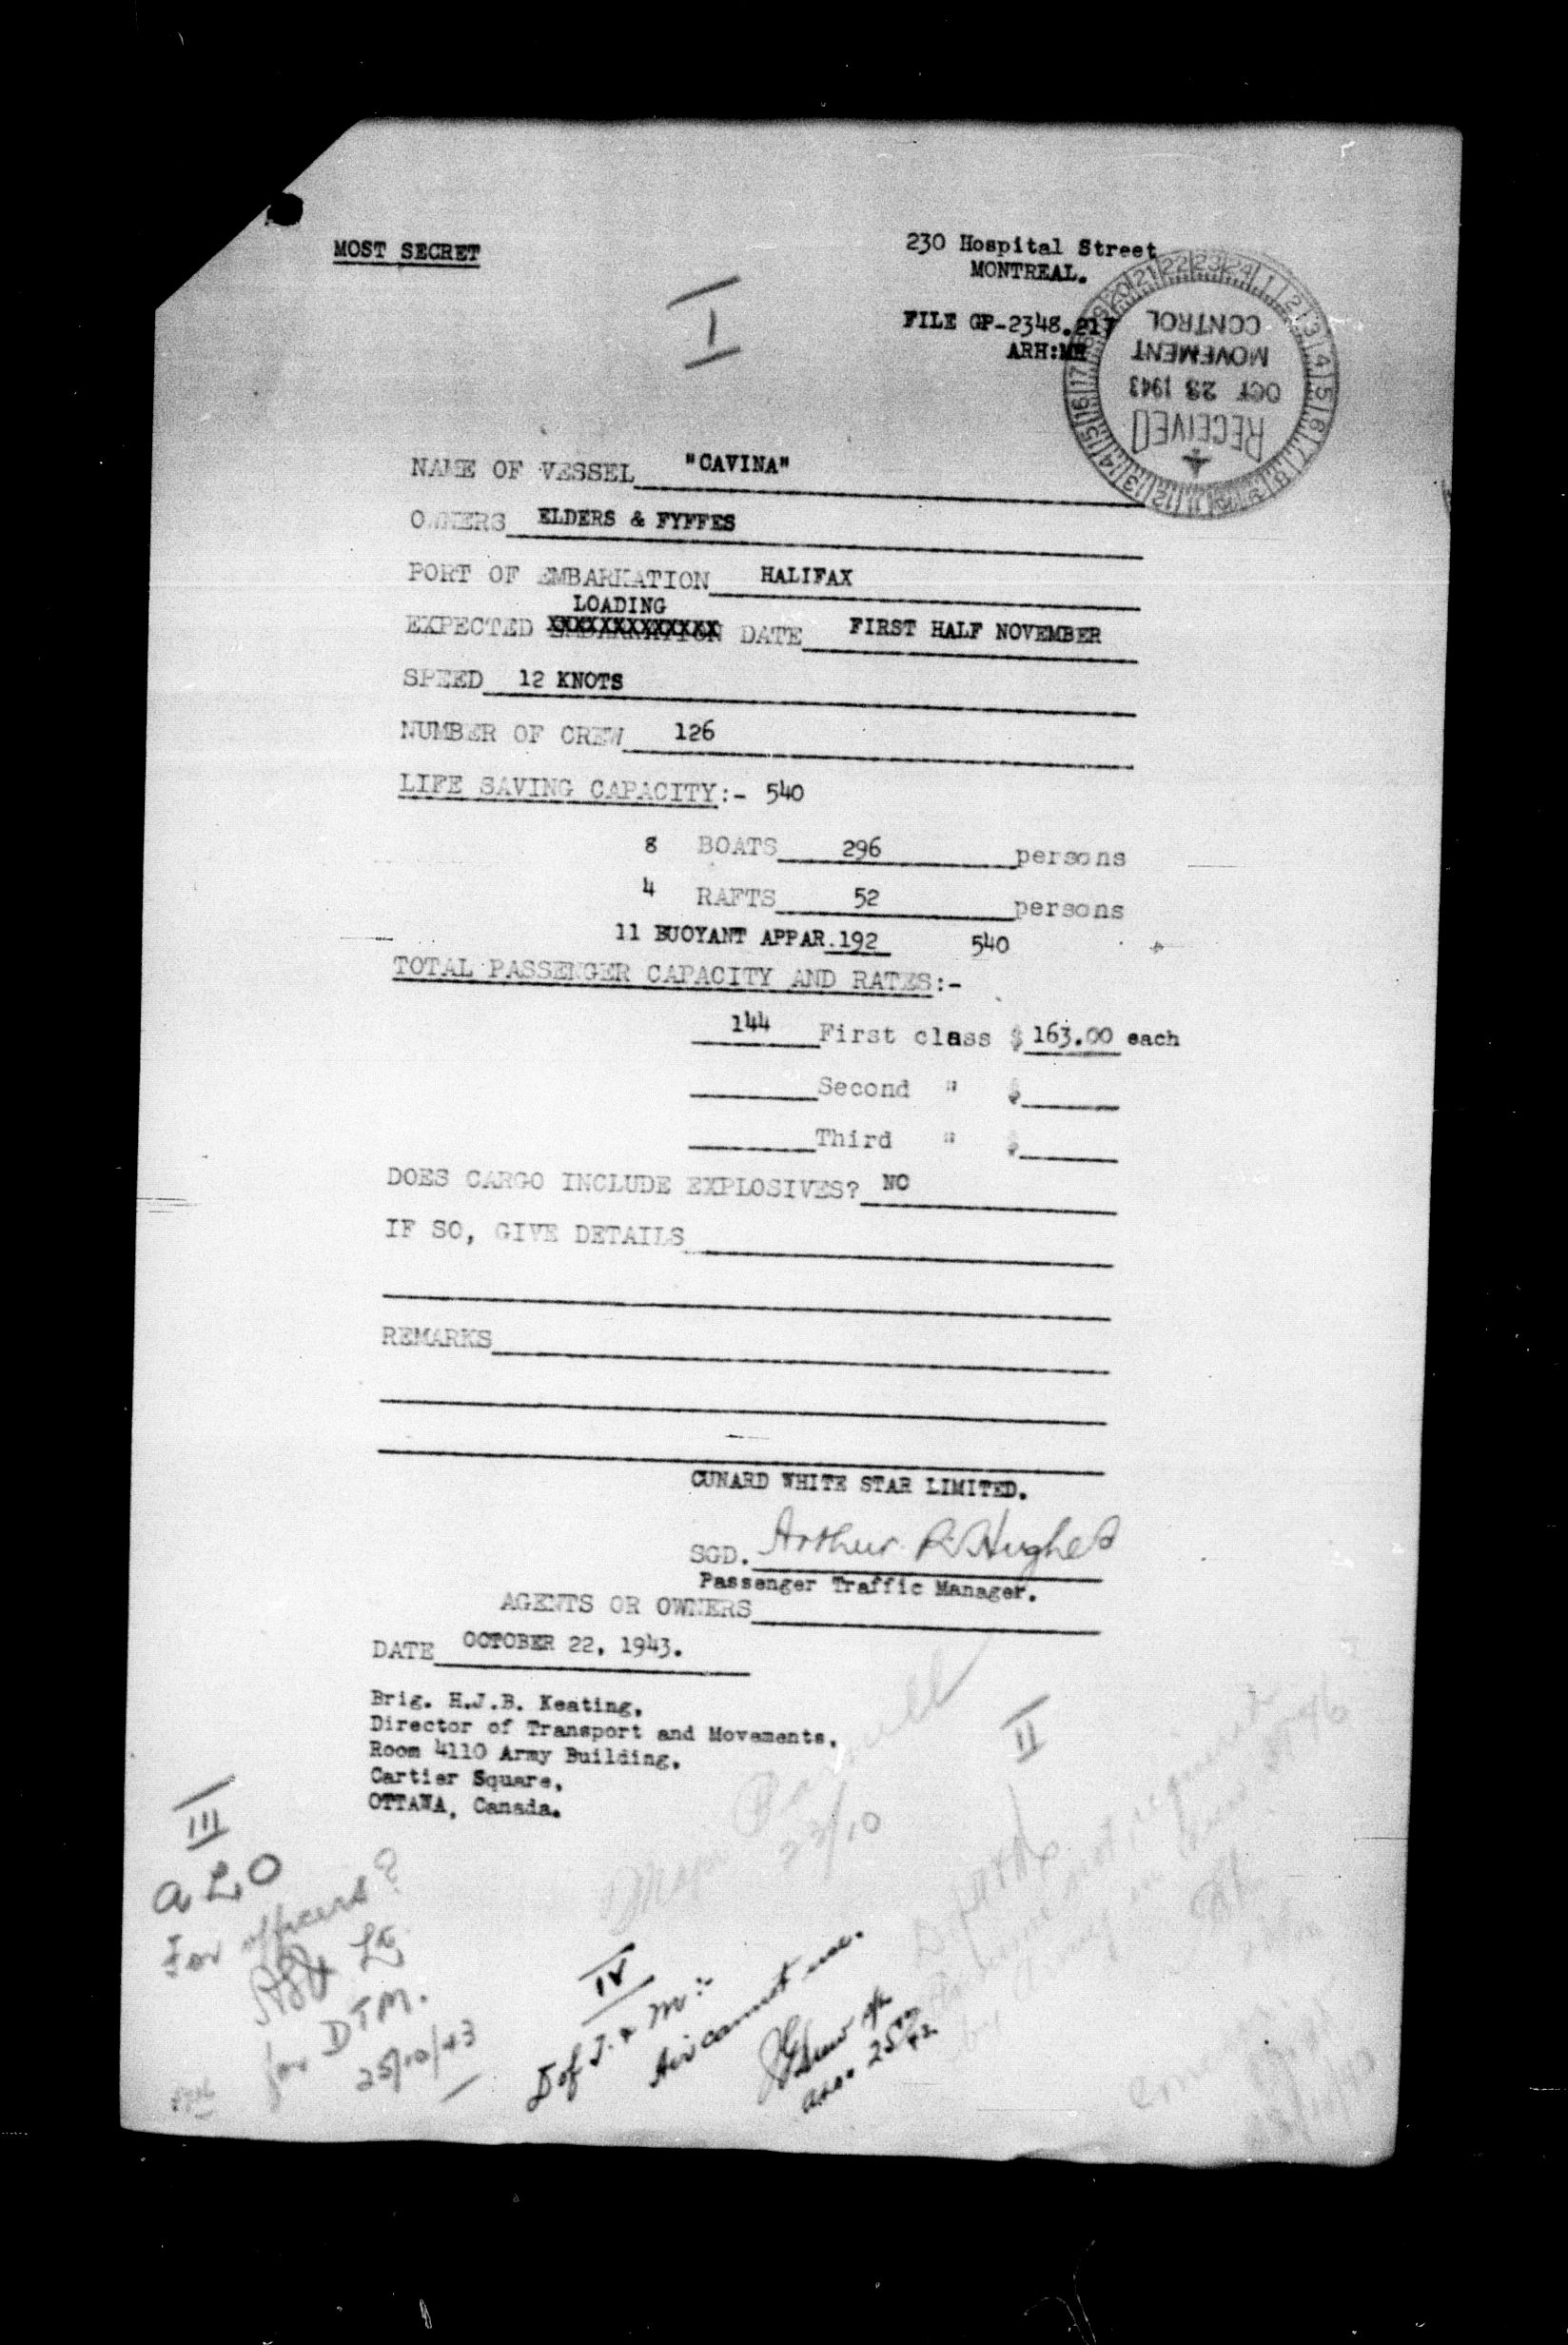 MOST SECRET
230 Hospital Street
MONTREAL.
I
FILE GP-2348.217
ARH:MH
24 1 2 3 4 5 6 7 8 9 10 11 12 13 14 15 16 17 18 19 20 21 22 23
RECEIVED
OCT 23 1943
MOVEMENT
CONTROL
NAME OF VESSEL "CAVINA"
OWNERS ELDERS & FYFFES
PORT OF EMBARKATION HALIFAX
LOADING
EXPECTED EMBARKATION DATE FIRST HALF NOVEMBER
SPEED 12 KNOTS
NUMBER OF CREW 126
LIFE SAVING CAPACITY:- 540
8 BOATS 296 persons
4 RAFTS 52 persons
11 BUOYANT APPAR. 192 540
TOTAL PASSENGER CAPACITY AND RATES:-
144 First class $ 163.00 each
Second " $
Third " $
DOES CARGO INCLUDE EXPLOSIVES? NO
IF SO, GIVE DETAILS
REMARKS
CUNARD WHITE STAR LIMITED.
SGD. Arthur R Hughes
Passenger Traffic Manager.
AGENTS OR OWNERS
DATE OCTOBER 22, 1943.
Brig. H.J.B. Keating,
Director of Transport and Movements,
Room 4110 Army Building,
Cartier Square,
OTTAWA, Canada.
Major
23/10
II
not required
by Army
III
A L O
For officers?
for DTM.
25/10/43
IV
D of T. & M:-
Air cannot use.